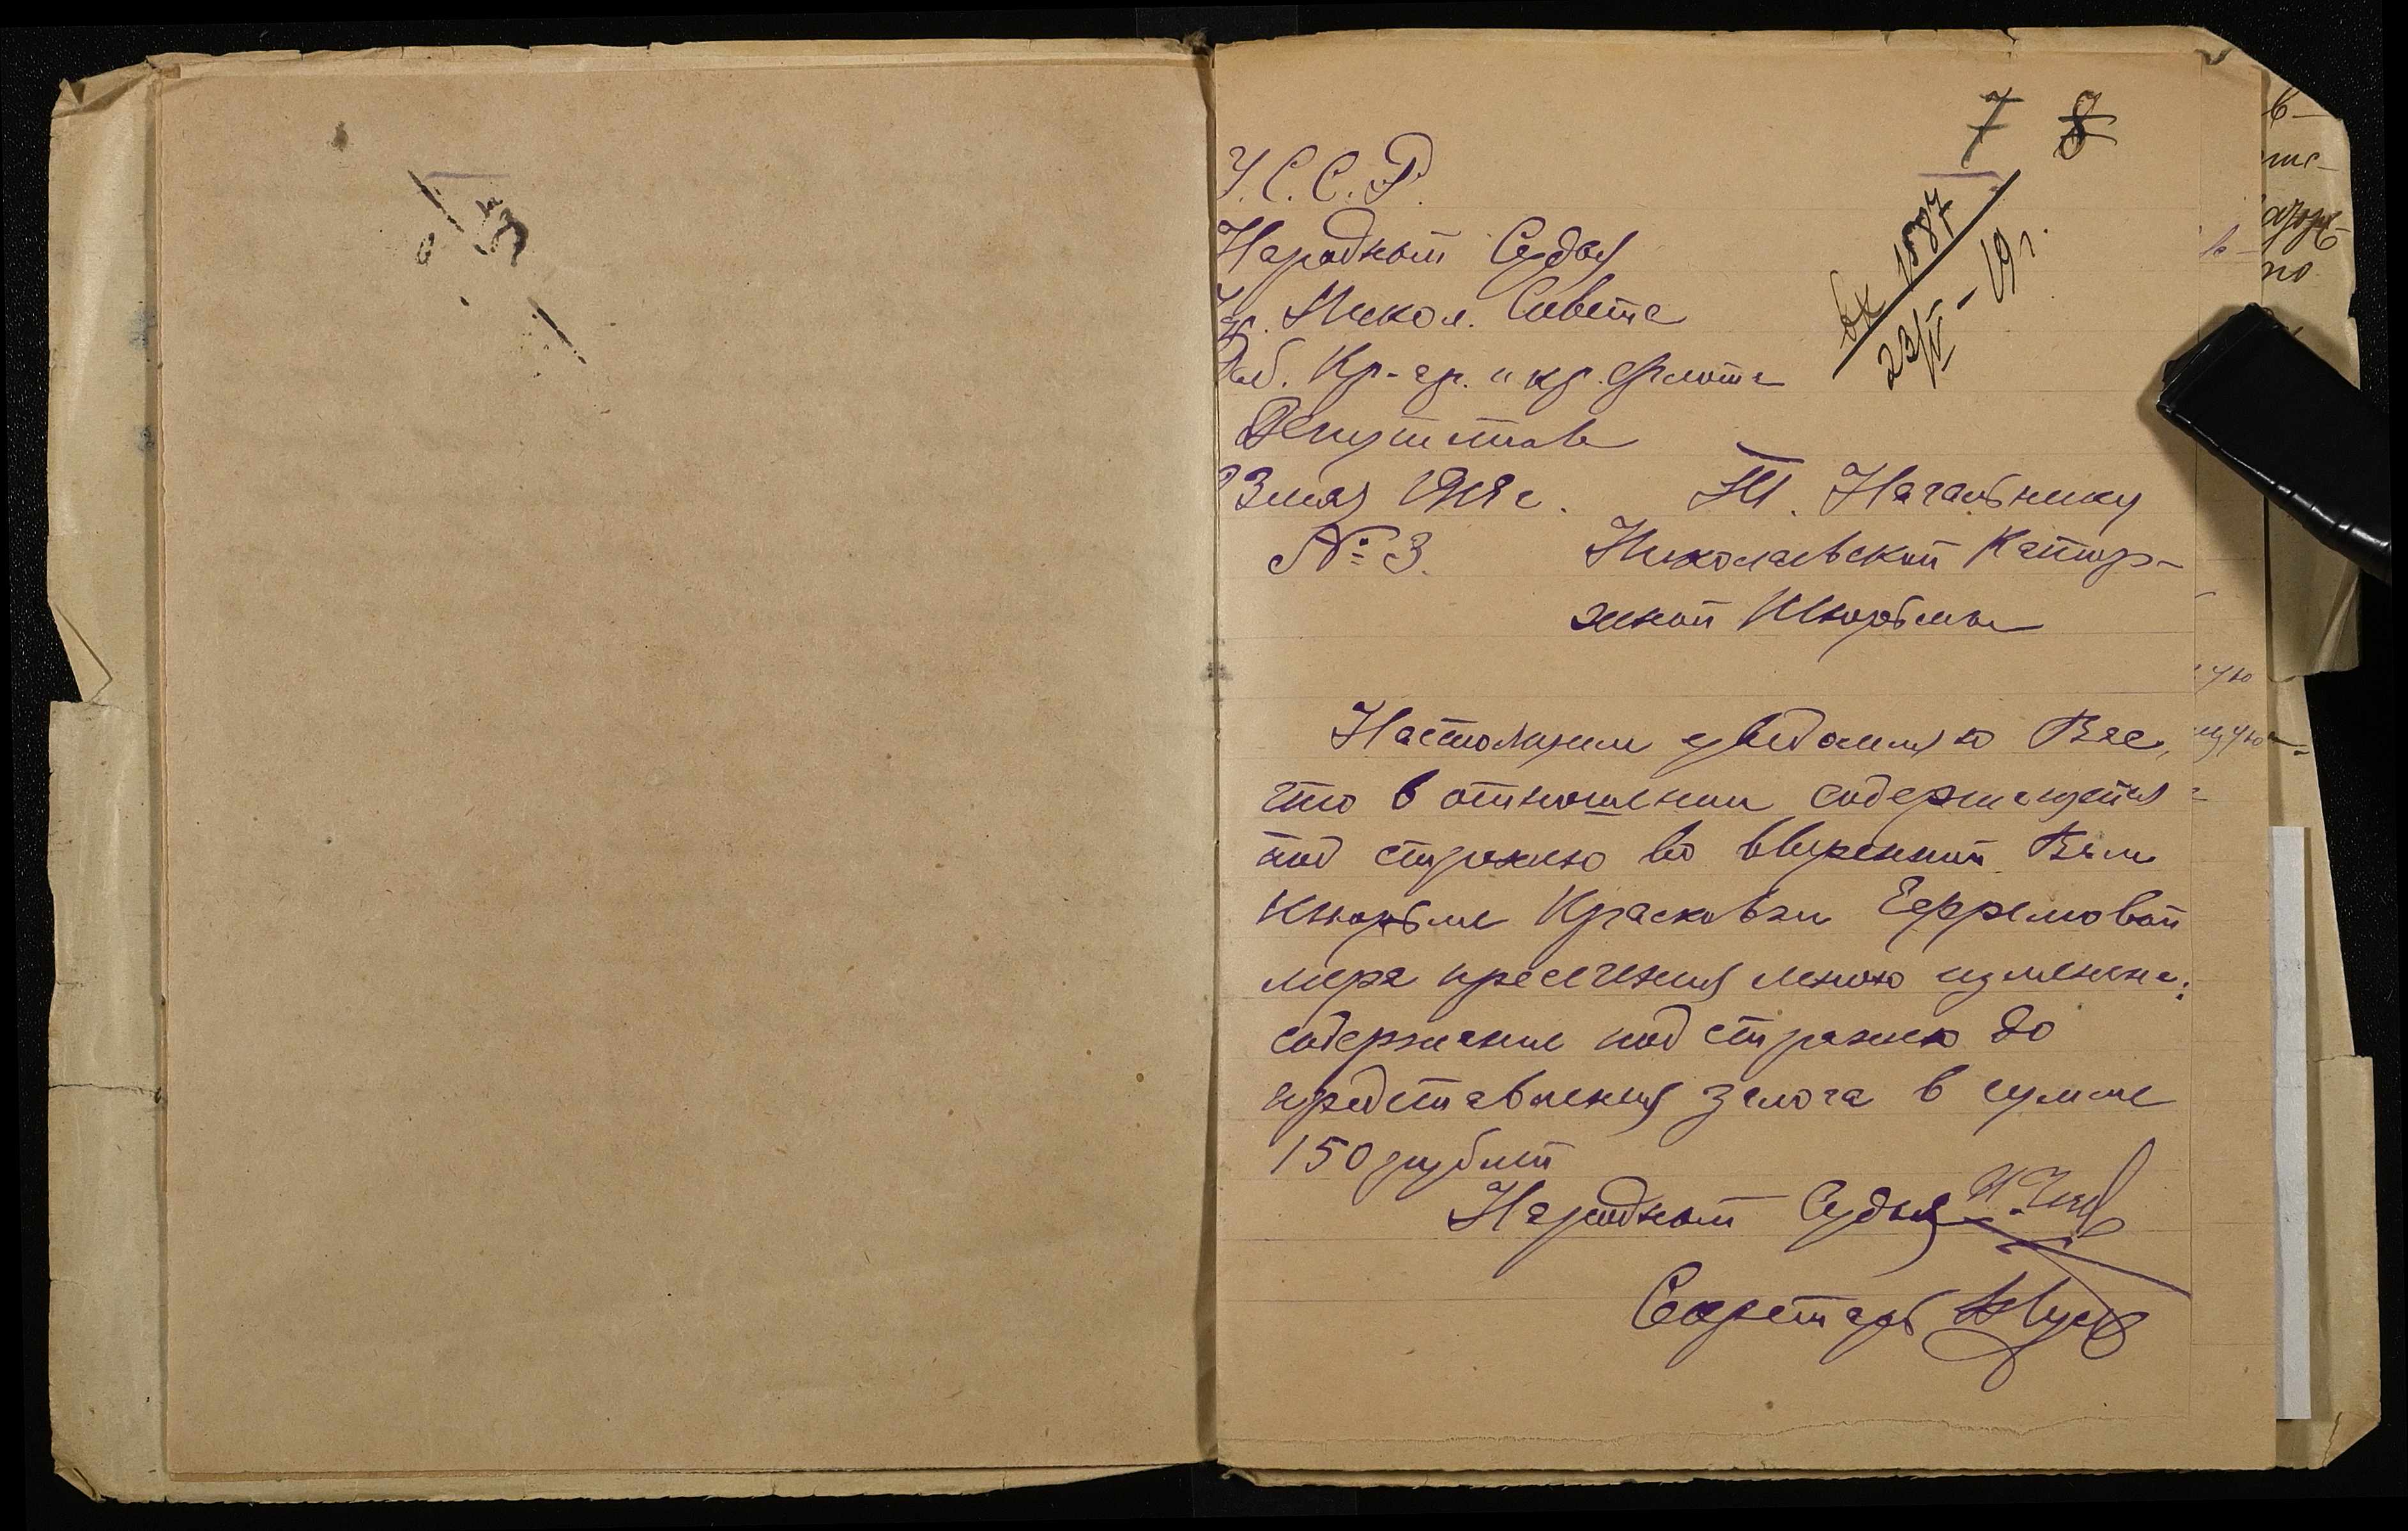 7 8
вх 1887
23/V - 19 г.
У.С.С.Р.
Народный Судья
Никол. Совета
Раб. Кр-ар. и кр. флота
Депутатов
23 мая 1919 г. Т. Начальнику
№ 3. Николаевской Катор-
жной Тюрьмы
Настоящим уведомляю Вас,
что в отношении содержащейся
под стражею во вверенной Вам
тюрьме Прасковьи Ефремовой
мера пресечения мною изменена:
содержание под стражею до
представления залога в сумме
150 рублей
Народный Судья
Секретарь